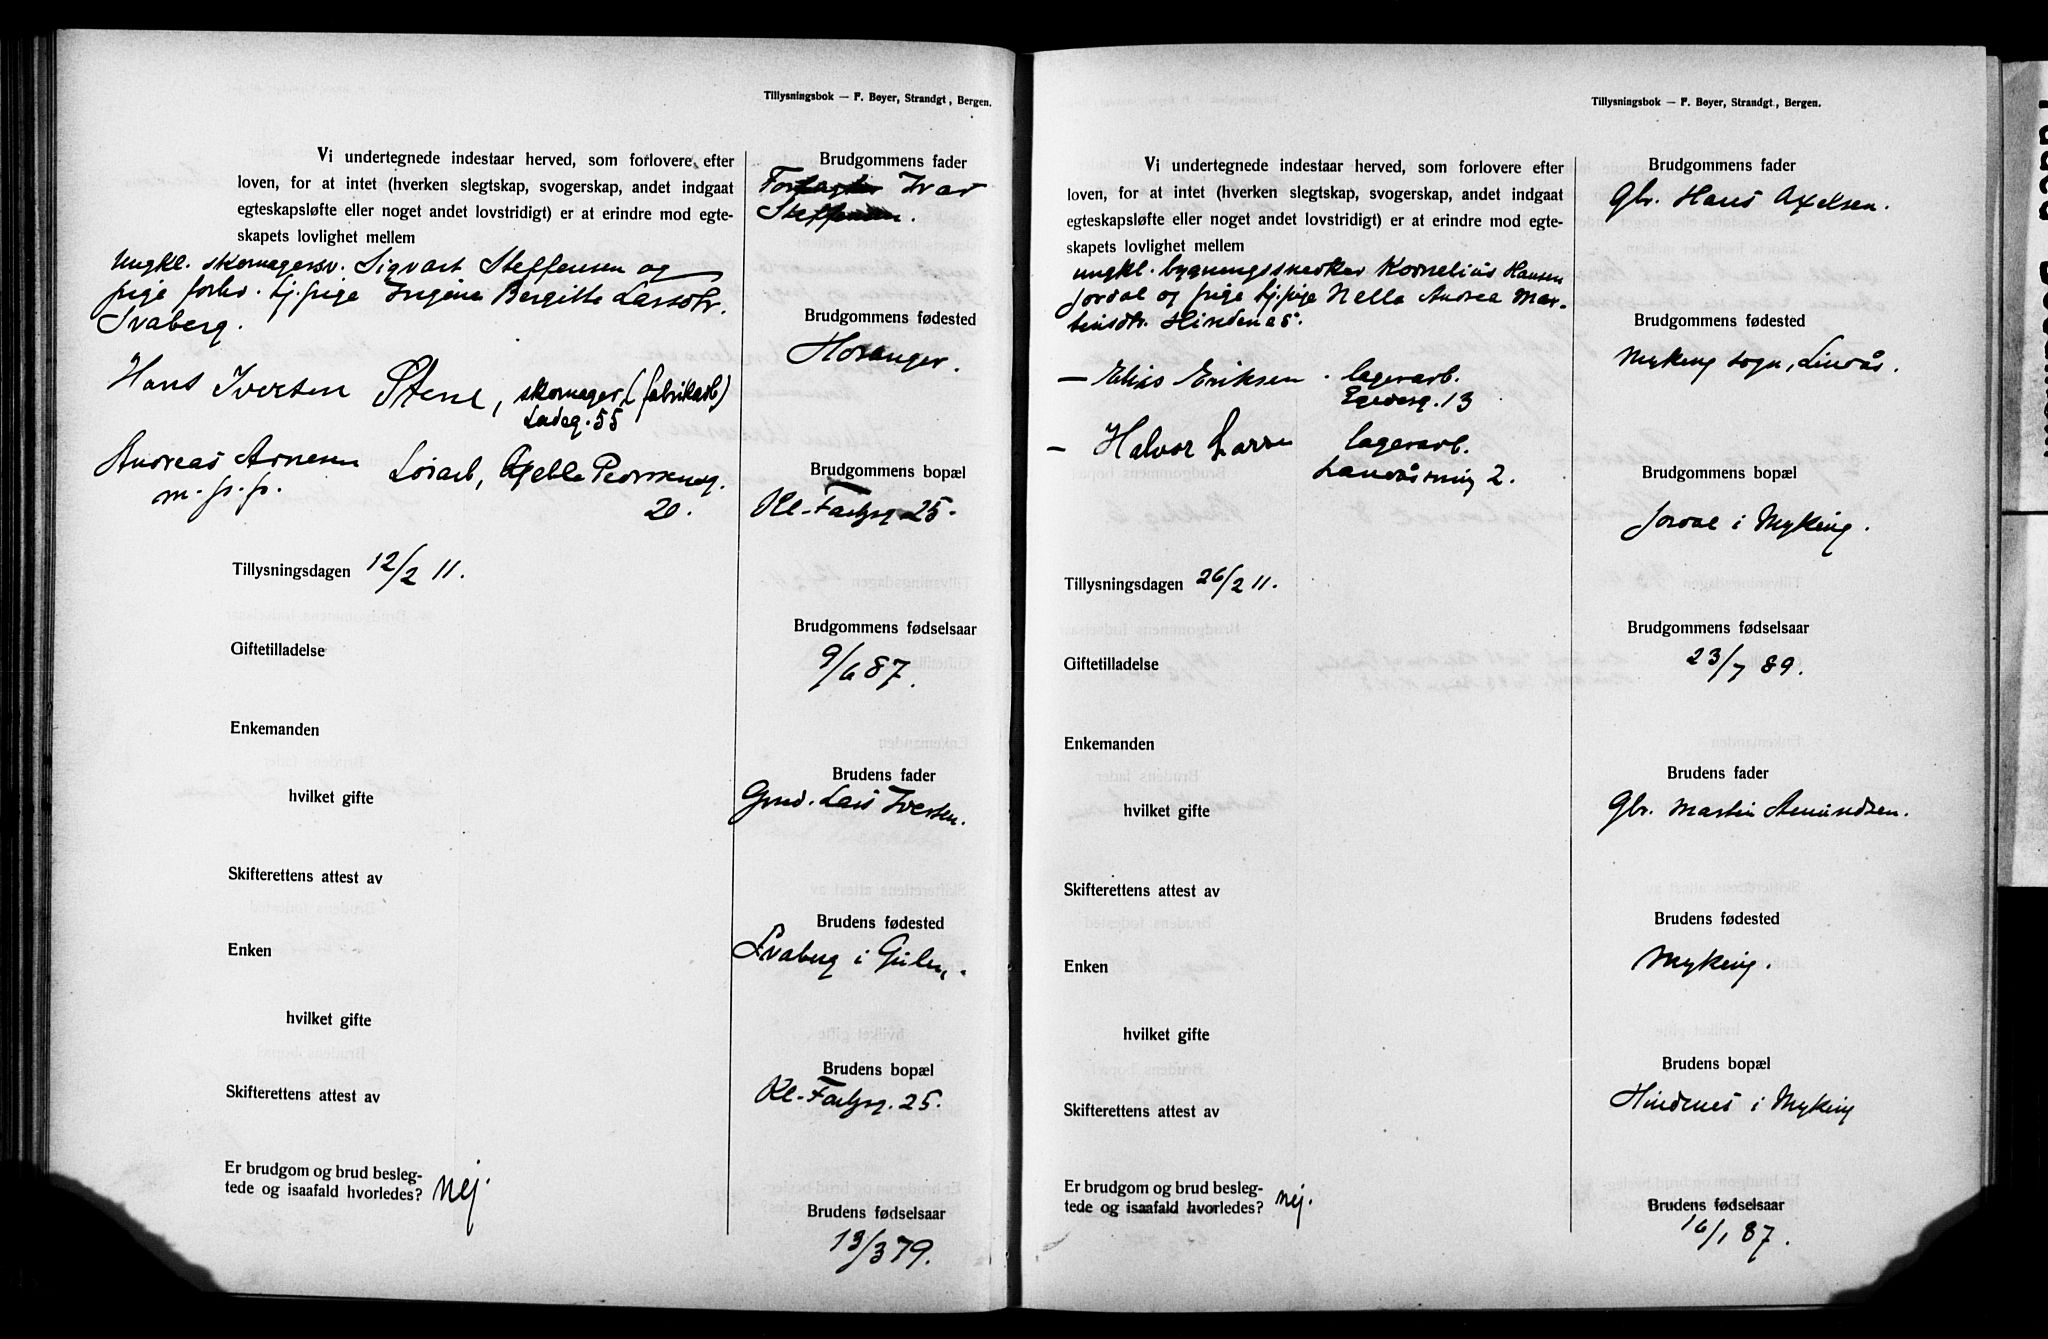 Tillysningsbok — F. Beyer, Strandgt, Bergen.
Vi undertegnede indestaar herved, som forlovere efter
loven, for at intet (hverken slegtskap, svogerskap, andet indgaat
egteskapsløfte eller noget andet lovstridigt) er at erindre mod egte-
skapets lovlighet mellem
Ungkl. skomagersv. Sigvart Steffensen og
pige forhv. tj.pige Ingine Bergitte Larsdtr.
Svaberg.
Hans Iversen Stene, skomager, (fabrikarb)
Ladeg. 55
Andreas Arnesen Løsarb, Gjelle Pedersmug.
m. p. p. 20.
Tillysningsdagen 12/2 11.
Giftetilladelse
Enkemanden
hvilket gifte
Skifterettens attest av
Enken
hvilket gifte
Skifterettens attest av
Er brudgom og brud besleg-
tede og isaafald hvorledes? Nej.
Brudgommens fader
Ivar
Steffensen.
Brudgommens fødested
Hosanger.
Brudgommens bopæl
Kl-Farbg. 25.
Brudgommens fødselsaar
9/6 87.
Brudens fader
Grud. Lars Iversen.
Brudens fødested
Svaberg i Gulen.
Brudens bopæl
Kl-Farbg. 25.
Brudens fødselsaar
13/3 79.
Tillysningsbok — F. Beyer, Strandgt., Bergen.
Vi undertegnede indestaar herved, som forlovere efter
loven, for at intet (hverken slegtskap, svogerskap, andet indgaat
egteskapsløfte eller noget andet lovstridigt) er at erindre mod egte-
skapets lovlighet mellem
ungkl. bygningssnedker Kornelius Hansen
Jordal og pige tj.pige Nella Andrea Mar-
tinsdtr. Hindenæs.
— Elias Eriksen. lagerarb.
Egedesg. 13
— Halvor Larsen lagerarb.
Landåsmug 2.
Tillysningsdagen 26/2 11.
Giftetilladelse
Enkemanden
hvilket gifte
Skifterettens attest av
Enken
hvilket gifte
Skifterettens attest av
Er brudgom og brud besleg-
tede og isaafald hvorledes? Nej.
Brudgommens fader
Gbr. Hans Axelsen.
Brudgommens fødested
Myking sogn, Lindås.
Brudgommens bopæl
Jordal i Myking.
Brudgommens fødselsaar
23/7 89.
Brudens fader
Gbr. Martin Amundsen.
Brudens fødested
Myking.
Brudens bopæl
Hindenes i Myking
Brudens fødselsaar
16/1 87.